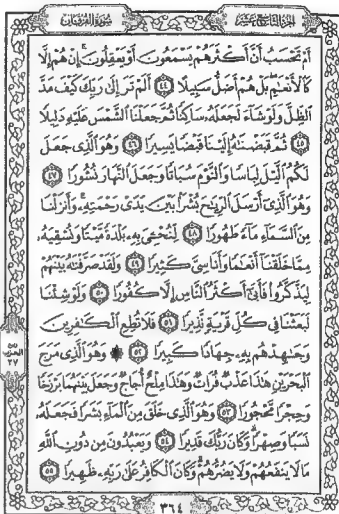 الجزء التاسع عشر
سورة الفرقان
أَمْ تَحْسَبُ أَنَّ أَكْثَرَهُمْ يَسْمَعُونَ أَوْ يَعْقِلُونَ إِنْ هُمْ إِلَّا
كَالْأَنْعَٰمِ بَلْ هُمْ أَضَلُّ سَبِيلًا ٤٤ أَلَمْ تَرَ إِلَىٰ رَبِّكَ كَيْفَ مَدَّ
ٱلظِّلَّ وَلَوْ شَآءَ لَجَعَلَهُۥ سَاكِنًا ثُمَّ جَعَلْنَا ٱلشَّمْسَ عَلَيْهِ دَلِيلًا
٤٥ ثُمَّ قَبَضْنَٰهُ إِلَيْنَا قَبْضًا يَسِيرًا ٤٦ وَهُوَ ٱلَّذِى جَعَلَ
لَكُمُ ٱلَّيْلَ لِبَاسًا وَٱلنَّوْمَ سُبَاتًا وَجَعَلَ ٱلنَّهَارَ نُشُورًا ٤٧
وَهُوَ ٱلَّذِىٓ أَرْسَلَ ٱلرِّيَٰحَ بُشْرًۢا بَيْنَ يَدَىْ رَحْمَتِهِۦ وَأَنزَلْنَا
مِنَ ٱلسَّمَآءِ مَآءً طَهُورًا ٤٨ لِّنُحْـِۧىَ بِهِۦ بَلْدَةً مَّيْتًا وَنُسْقِيَهُۥ
مِمَّا خَلَقْنَآ أَنْعَٰمًا وَأَنَاسِىَّ كَثِيرًا ٤٩ وَلَقَدْ صَرَّفْنَٰهُ بَيْنَهُمْ
لِيَذَّكَّرُوا۟ فَأَبَىٰٓ أَكْثَرُ ٱلنَّاسِ إِلَّا كُفُورًا ٥٠ وَلَوْ شِئْنَا
لَبَعَثْنَا فِى كُلِّ قَرْيَةٍ نَّذِيرًا ٥١ فَلَا تُطِعِ ٱلْكَٰفِرِينَ
وَجَٰهِدْهُم بِهِۦ جِهَادًا كَبِيرًا ٥٢ وَهُوَ ٱلَّذِى مَرَجَ
ٱلْبَحْرَيْنِ هَٰذَا عَذْبٌ فُرَاتٌ وَهَٰذَا مِلْحٌ أُجَاجٌ وَجَعَلَ بَيْنَهُمَا بَرْزَخًا
وَحِجْرًا مَّحْجُورًا ٥٣ وَهُوَ ٱلَّذِى خَلَقَ مِنَ ٱلْمَآءِ بَشَرًا فَجَعَلَهُۥ
نَسَبًا وَصِهْرًا وَكَانَ رَبُّكَ قَدِيرًا ٥٤ وَيَعْبُدُونَ مِن دُونِ ٱللَّهِ
مَا لَا يَنفَعُهُمْ وَلَا يَضُرُّهُمْ وَكَانَ ٱلْكَافِرُ عَلَىٰ رَبِّهِۦ ظَهِيرًا ٥٥
الحزب
٣٧
٣٦٤